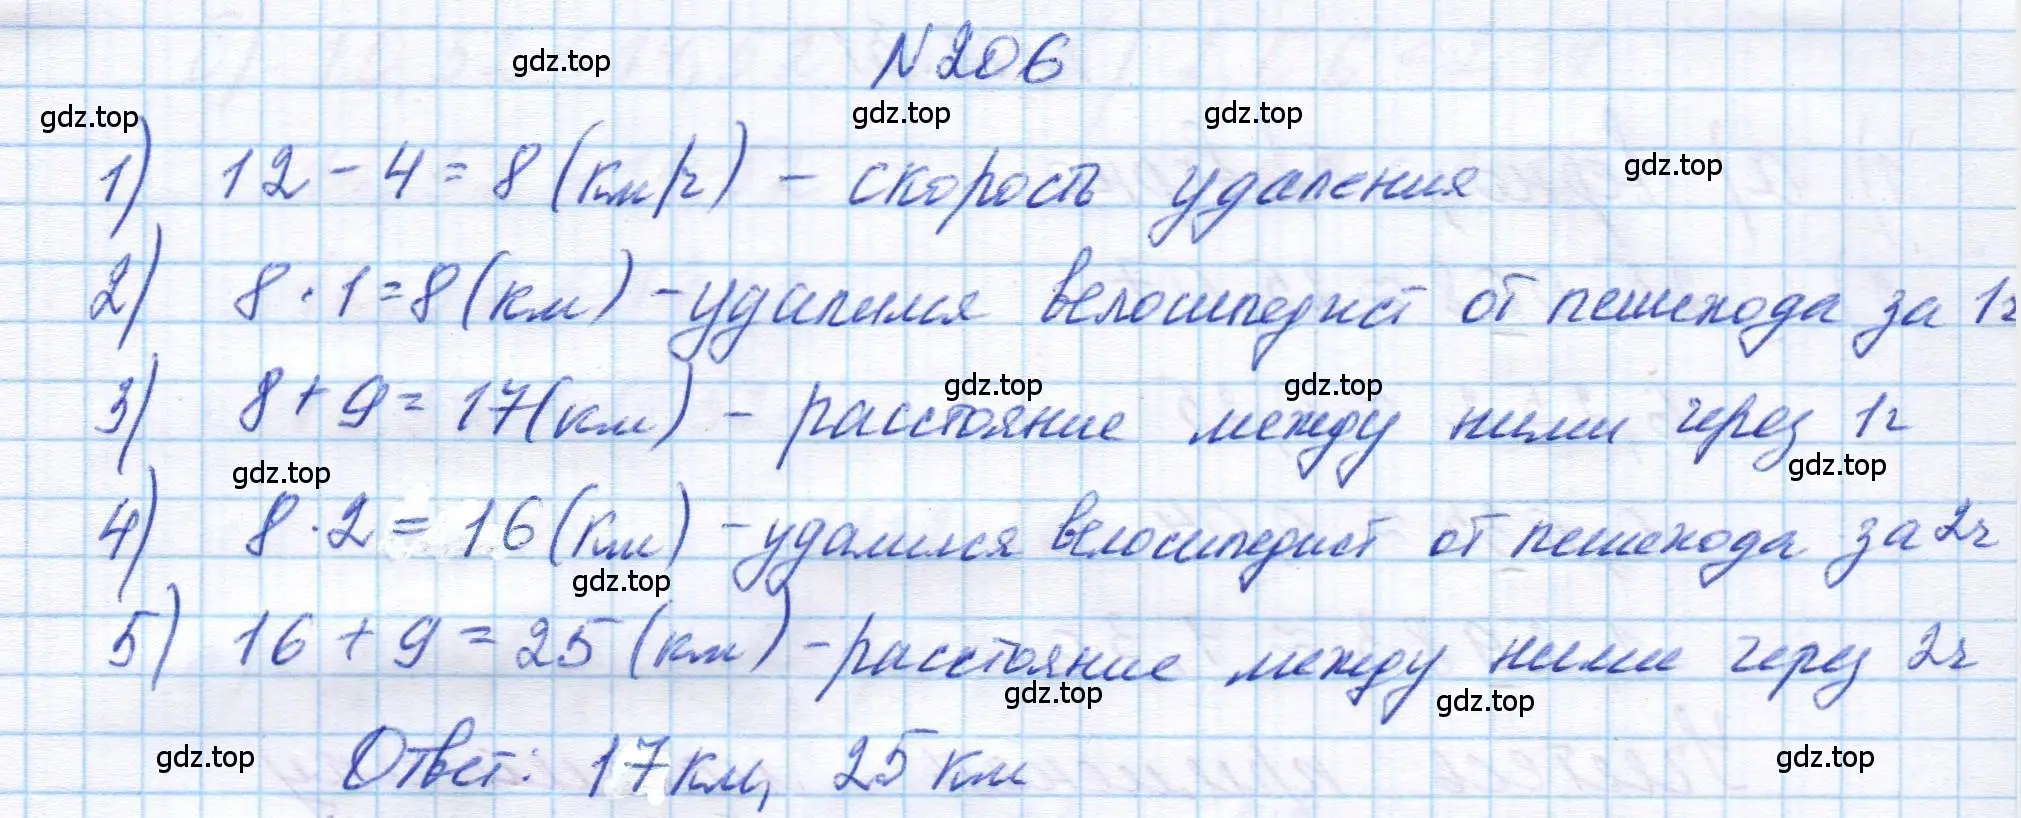 № 206
1) 12 - 4 = 8 (км/ч) - скорость удаления
2) 8 · 1 = 8 (км) - удалился велосипедист от пешехода за 1ч
3) 8 + 9 = 17 (км) - расстояние между ними через 1ч
4) 8 · 2 = 16 (км) - удалился велосипедист от пешехода за 2ч
5) 16 + 9 = 25 (км) - расстояние между ними через 2ч
Ответ: 17 км, 25 км
gdz.top
gdz.top
gdz.top
gdz.top
gdz.top
gdz.top
gdz.top
gdz.top
gdz.top
gdz.top
gdz.top
gdz.top
gdz.top
gdz.top